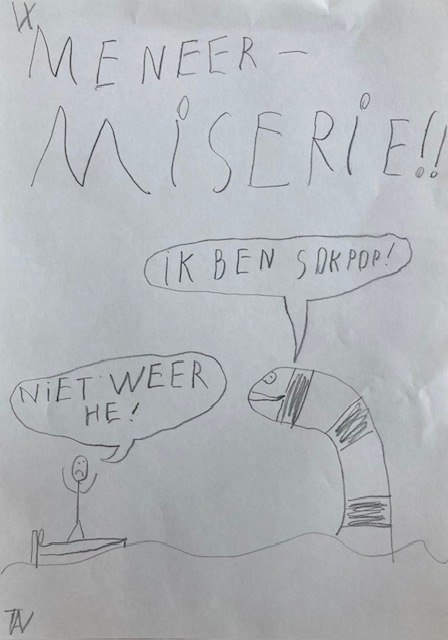 MENEER-
MISERIE!!
IK BEN SOKPOP!
NIET WEER
HE!